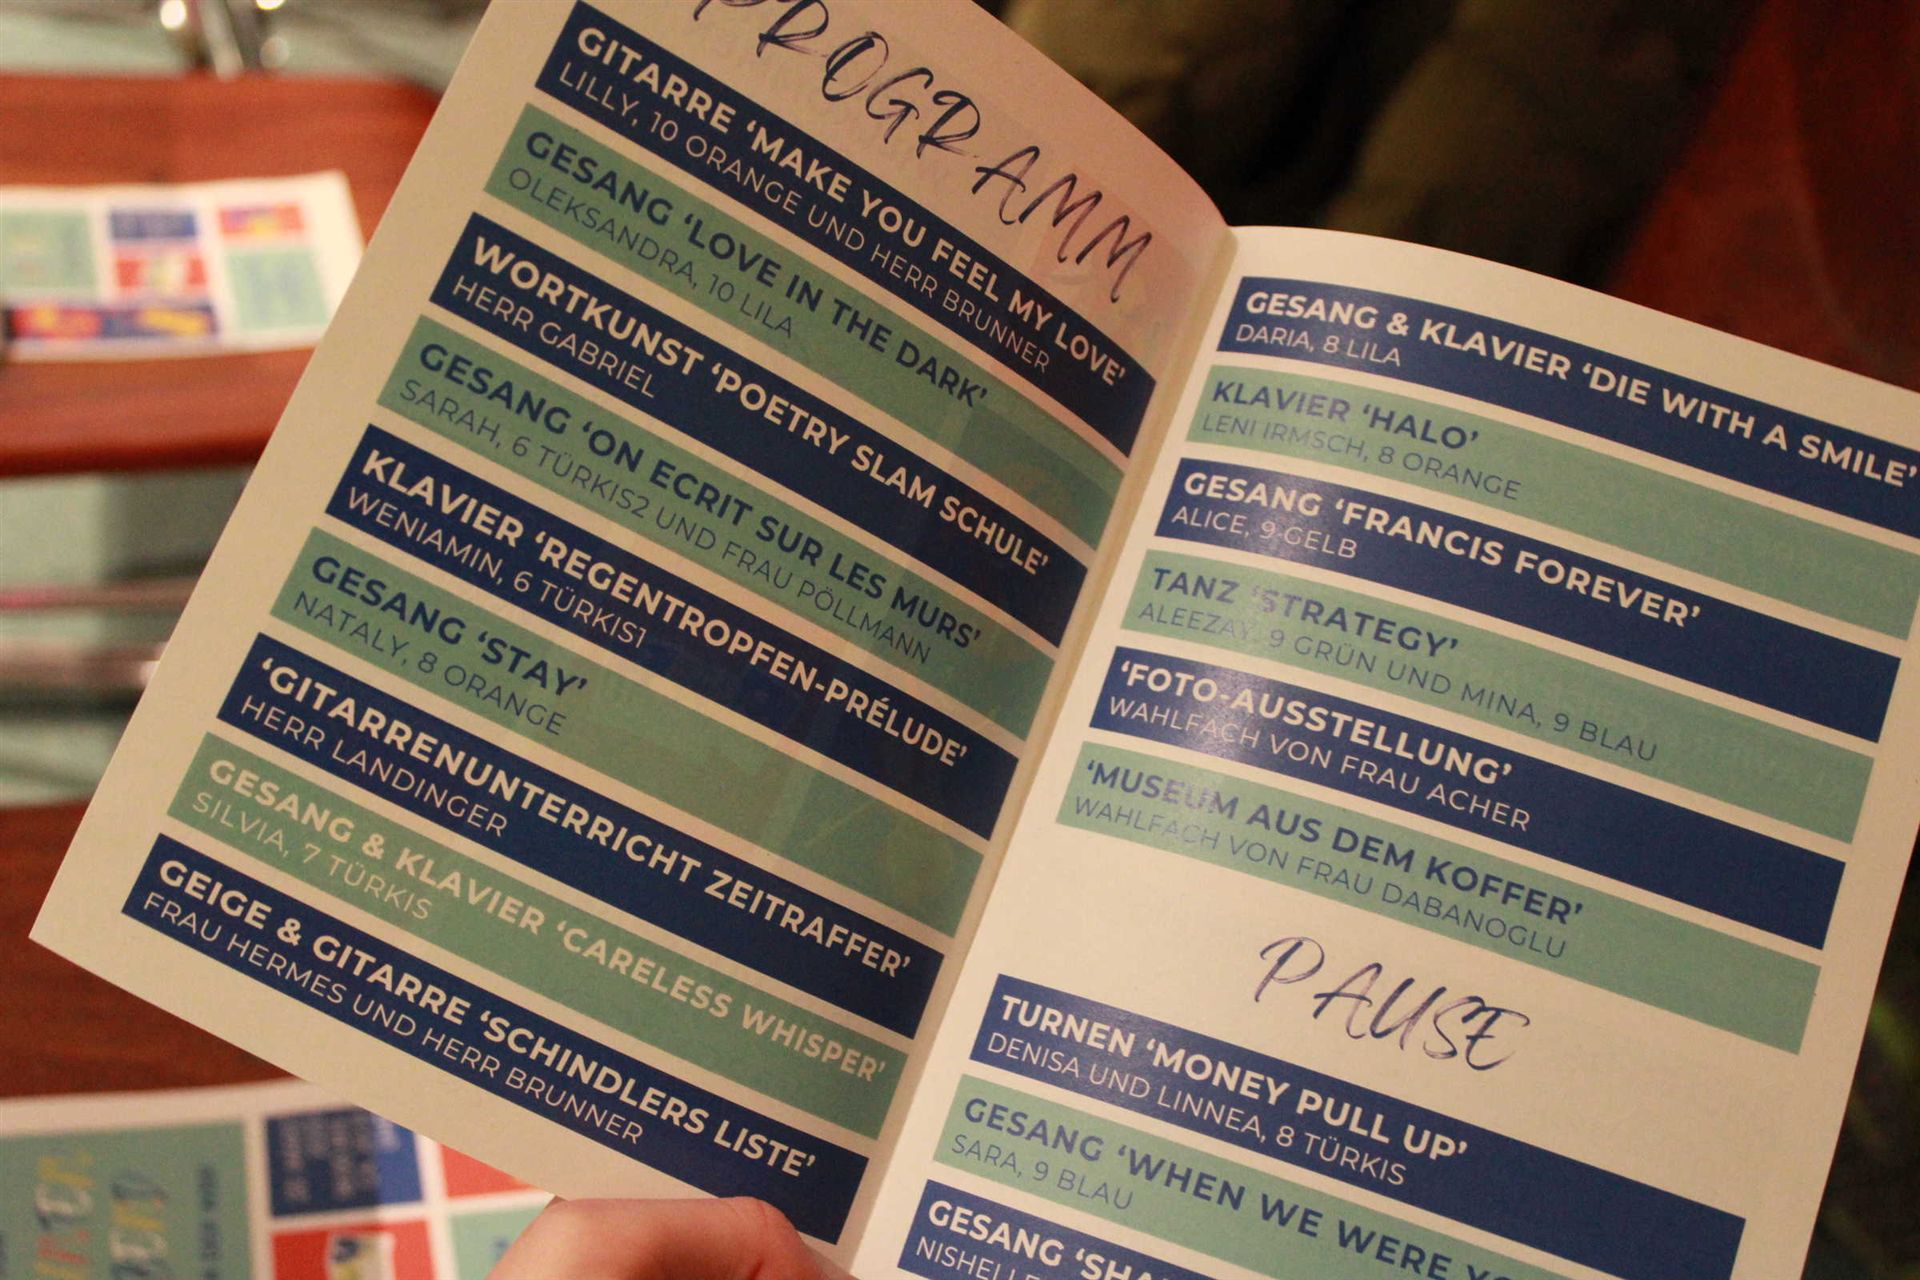 PROGRAMM
GITARRE ‘MAKE YOU FEEL MY LOVE’
LILLY, 10 ORANGE UND HERR BRUNNER
GESANG ‘LOVE IN THE DARK’
OLEKSANDRA, 10 LILA
WORTKUNST ‘POETRY SLAM SCHULE’
HERR GABRIEL
GESANG ‘ON ECRIT SUR LES MURS’
SARAH, 6 TÜRKIS2 UND FRAU PÖLLMANN
KLAVIER ‘REGENTROPFEN-PRÉLUDE’
WENIAMIN, 6 TÜRKIS1
GESANG ‘STAY’
NATALY, 8 ORANGE
‘GITARRENUNTERRICHT ZEITRAFFER’
HERR LANDINGER
GESANG & KLAVIER ‘CARELESS WHISPER’
SILVIA, 7 TÜRKIS
GEIGE & GITARRE ‘SCHINDLERS LISTE’
FRAU HERMES UND HERR BRUNNER
GESANG & KLAVIER ‘DIE WITH A SMILE’
DARIA, 8 LILA
KLAVIER ‘HALO’
LENI IRMSCH, 8 ORANGE
GESANG ‘FRANCIS FOREVER’
ALICE, 9 GELB
TANZ ‘STRATEGY’
ALEEZAY, 9 GRÜN UND MINA, 9 BLAU
‘FOTO-AUSSTELLUNG’
WAHLFACH VON FRAU ACHER
‘MUSEUM AUS DEM KOFFER’
WAHLFACH VON FRAU DABANOGLU
PAUSE
TURNEN ‘MONEY PULL UP’
DENISA UND LINNEA, 8 TÜRKIS
GESANG ‘WHEN WE WERE
SARA, 9 BLAU
GESANG